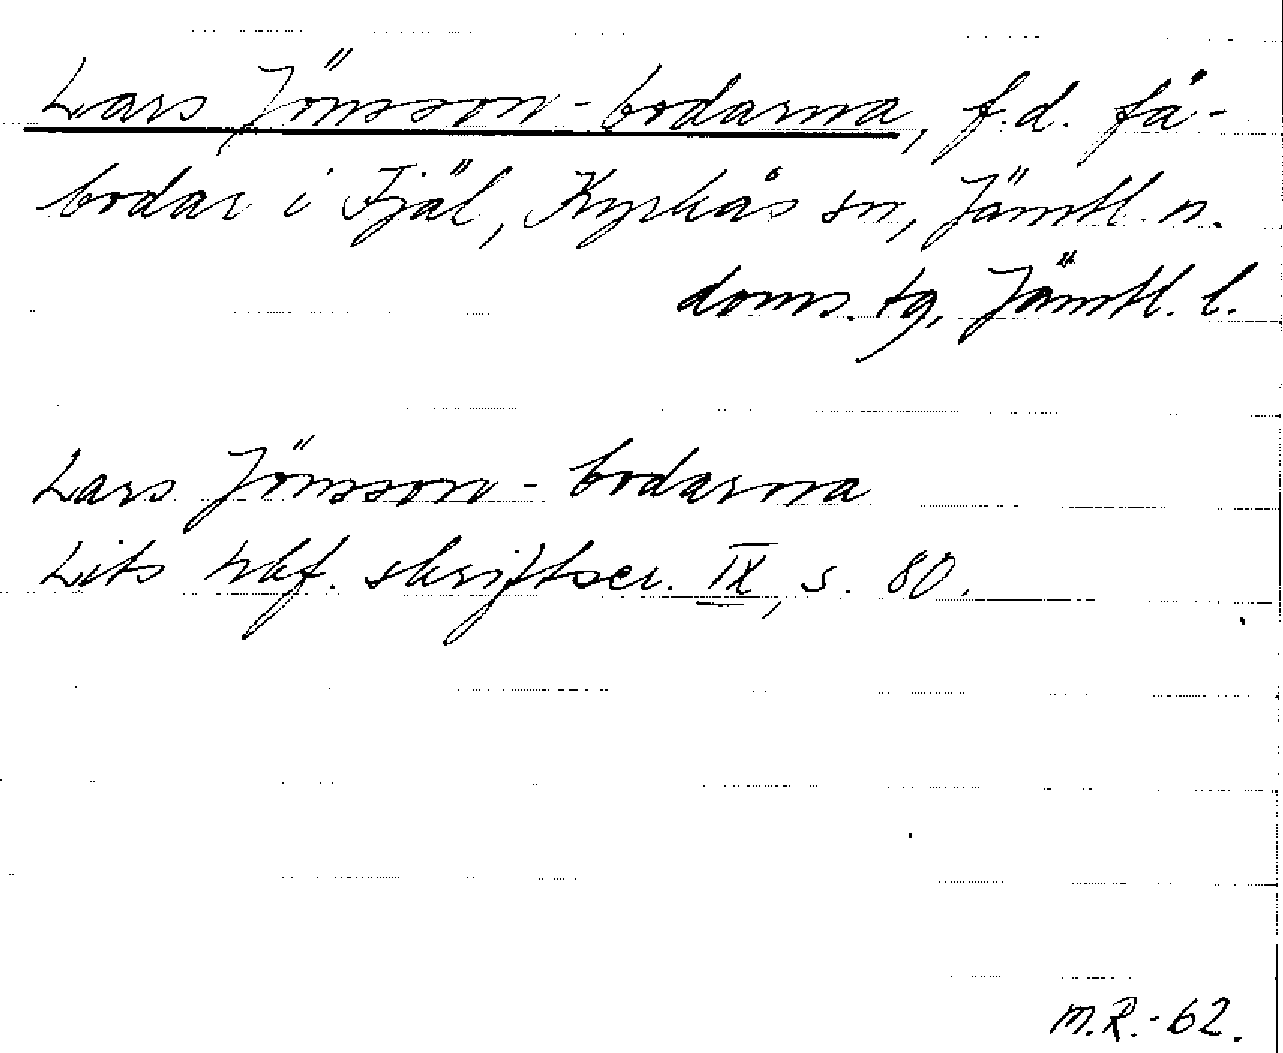 Lars Jönsson-bodarna, f.d. få-
bodar i Fjäl, Kyrkås sn, Jämtl. n.
doms. tg, Jämtl. l.
Lars Jönsson-bodarna
Lits hbf. skriftser. IX, s. 80.
M.R.-62.